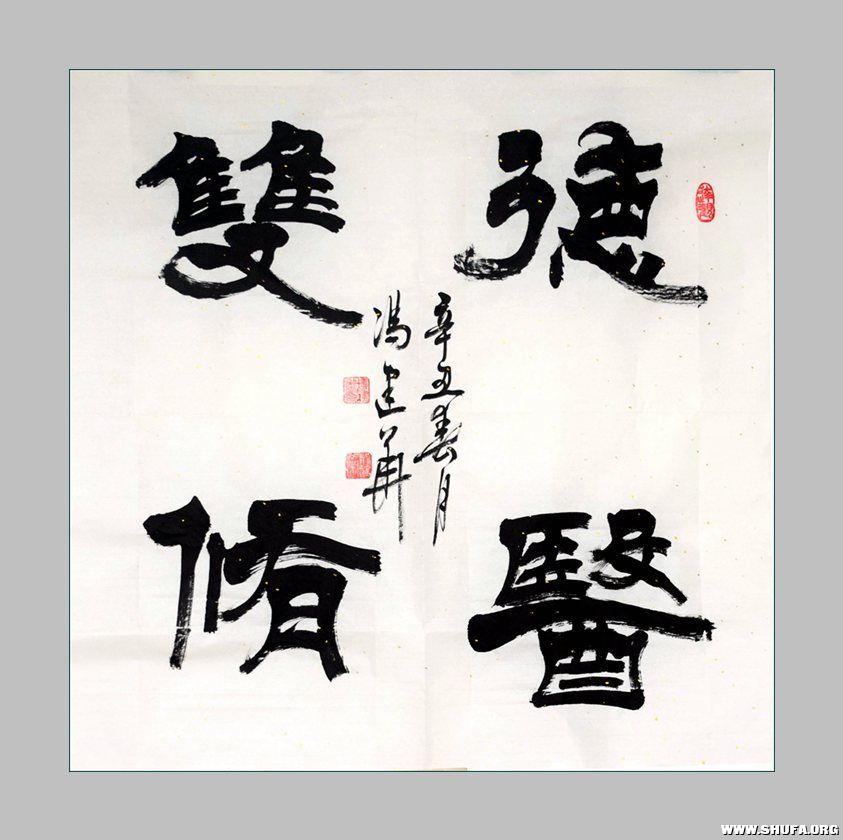 德醫
雙脩
辛丑春月
馮建華
WWW.SHUFA.ORG